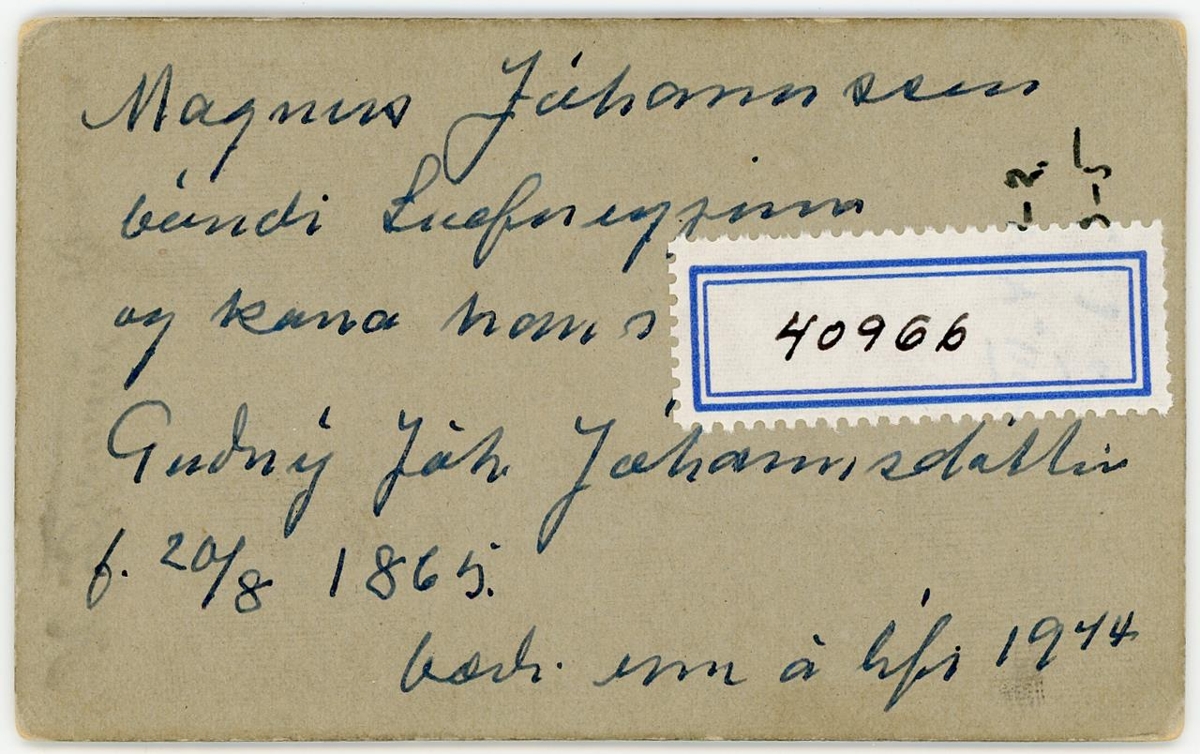 Magnus Jóhannsson
bóndi Svefneyjum
og kona hans
40966
Guðný Jóh. Jóhannsdóttir
f. 20/8 1865.
bæði enn á lífi 1944